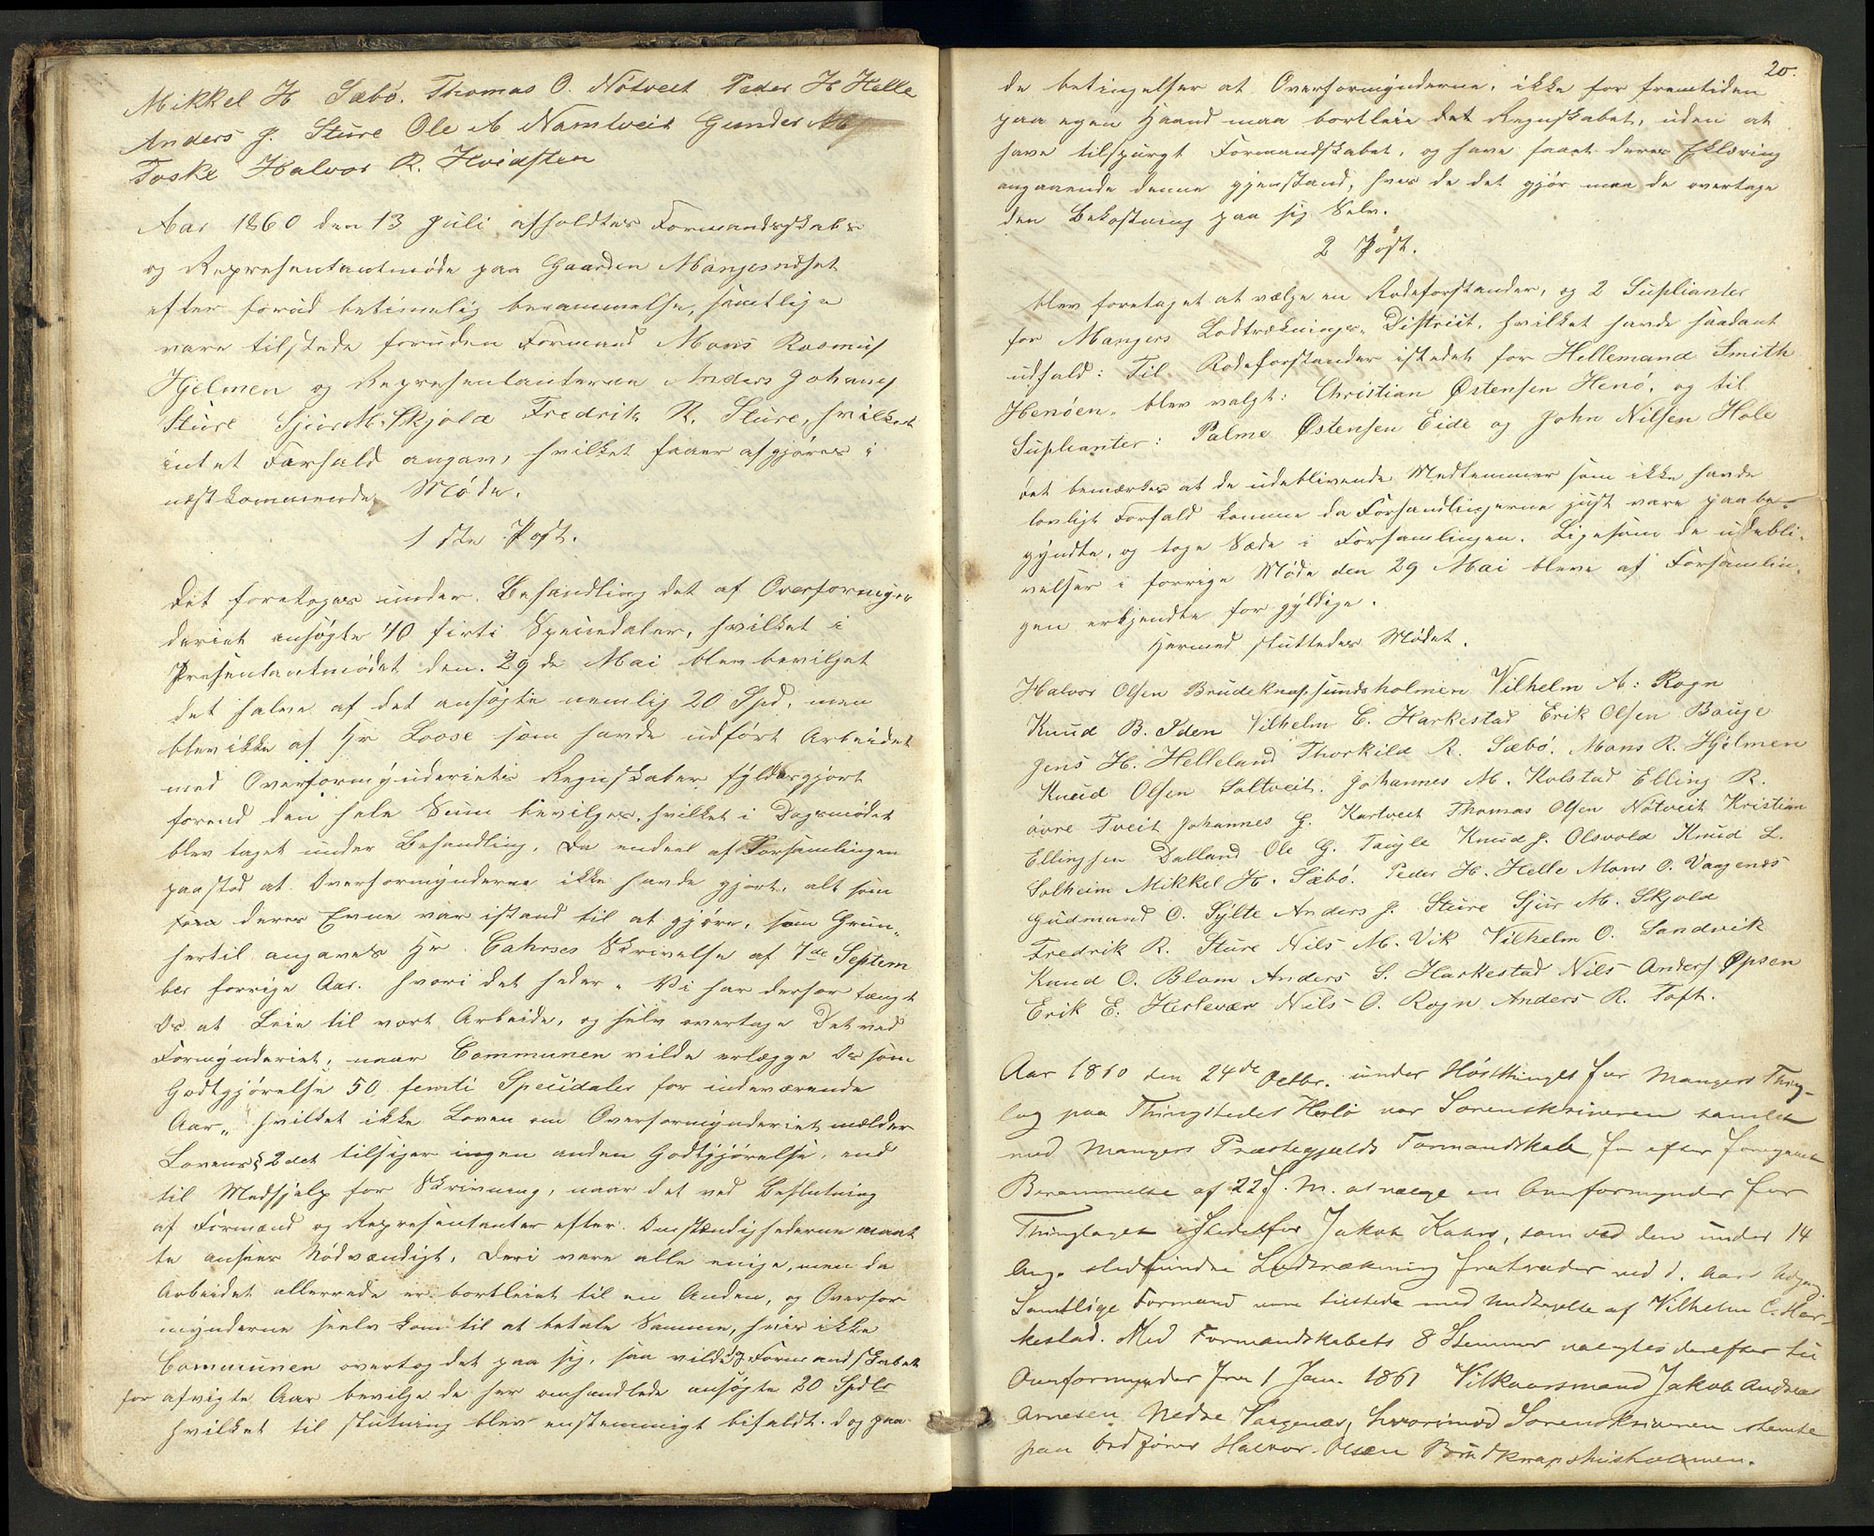 Mikkel H Sæbö. Thomas O. Nötveit Peder H Helle
Anders J. Sture Ole A Namtveit Gunder M
Toske Halvor R. Hvidsten
Aar 1860 den 13 Juli afholdtes Formandsskabs
og Repræsentantmøde paa Gaarden Mangersnæset
efter forud betimelig berammelse, samtlige
vare tilstede foruden Formand Mons Rasmus
Hjelmen og Repræsentanterne Anders Johanes
Sture Sjur M. Skjold Fredrik R. Sture, hvilket
intet Forfald angav, hvilket faaer afgjøres i
næstkommende Møde.
1ste Post.
Det foretoges under Behandling det af Overformyn-
deriet ansøgte 40 firti Speciedaler, hvilket i
Presentantmødet den 29de Mai blev bevilget
det halve af det ansøgte nemlig 20 Spd, men
blev ikke af Hr Loose som havde udført Arbeidet
med Overformynderiets Regnskaber fyldesgjort
førend den hele Sum bevilges, hvilket i Dagsmødet
blev taget under Behandling. Da endeel af Forsamlingen
paastod at Overformynderne ikke havde gjort, alt som
deres Evne var istand til at gjøre, som Grun-
hertil angaves Hr. Cahrses Skrivelse af 7de Septem
ber forrige Aar. hvori det heder „ Vi har derfor tængt
Os at Leie til vort Arbeide, og selv overtage Det ved
Formynderiet, naar Communen vilde erlægge Os som
Godtgjørelse 50 femti Speciedaler for indeværende
Aar„ hvilket ikke Loven om Overformynderiet melder
Lovens § 2det tilsiger ingen anden Godtgjørelse, end
til Medhjelp for Skrivning, naar det ved Beslutning
af Formænd og Repræsentanter efter Omstændighederne maat
te ansees Nødvændigt. Deri vare alle enige, men da
Arbeidet allerrede er bortleiet til en Anden, og Overfor
mynderne selv kom til at betale Samme, hvis ikke
Communen overtog det paa sig, saa vilde dog Formandskabet
for afvigte Aar bevilge de her omhandlede ansøgte 20 Spdlr
hvilket til slutning blev enstemmigt bifaldt. dog paa
20.
de betingelser at Overformynderne, ikke for fremtiden
paa egen Haand maa bortleie det Regnskabet, uden at
have tilspurgt Formandskabet, og have faaet deres Eklæring
angaaende denne gjenstand, hvis de det gjør maa de overtage
den Bekostning paa sig Selv.
2 Post.
blev foretaget at vælge en Rodeforstander, og 2 Suplianter
for Mangers Lodtræknings„ District, hvilket havde saadant
udfald: Til Rodeforstander istedet for Hellemand Smith
Henöen„ blev valgt: Christian Østensen Henö, og til
Suplianter: Palme Østensen Eide og John Nilsen Hole
det bemærkes at de udeblivende Medlemmer som ikke havde
lovligt Forfald komme da Forhandlingerne just vare paabe-
gyndte, og toge Sæde i Forsamlingen. Ligesom de udebli-
velser i forrige Møde den 29 Mai bleve af Forsamlin-
gen erkjendte for gyldige.
Hermed sluttedes Mødet.
Halvor Olsen Brudeknapsundsholmen Vilhelm A: Rogn
Knud B. Iden Vilhelm C. Harkestad Erik Olsen Bauge
Jens H. Helleland Thorkild R. Sæbö. Mons R. Hjelmen
Knud Olsen Soltveit. Johannes M. Kolstad Elling R.
övre Tveit Johannes G. Kartveit Thomas Olsen Nötveit Kristian
Ellingsen Dalland Ole G. Taugle Knud J. Olsvold Knud L.
Solheim Mikkel H. Sæbö. Peder H. Helle Mons O. Vaagenæs
Gudmund O. Sylte Anders J. Sture Sjur M. Skjold
Fredrik R. Sture Nils M. Vik Vilhelm O. Sandvik
Knud O. Blom Anders S. Harkestad Nils Anders Øpsen
Erik E. Herlevær Nils O. Rogn Anders R. Toft.
Aar 1860 den 24de Octbr. under Høstthinget for Mangers Thing-
lag paa Thingstedet Herlö var Sorenskriveren samlet
med Mangers Præstegjelds Formandskab, for efter foregaaet
Berammelse af 22 f. M. at vælge en Overformynder for
Thinglaget istedetfor Jakob Kahrs, som ved den under 14
Aug. stedfundne Lodtrækning fratræder ved d. Aars Udgang
Samtlige Formænd vare tilstede med Undtagelse af Vilhelm C. Har-
kestad. Med Formandskabets 8 Stemmer valgtes derefter til
Overformynder fra 1 Jan. 1861 Vilkaarsmand Jakob Andreas
Arnesen Nedre Vaagenæs, hvorimod Sorenskriveren stemte
paa Ordfører Halvor Olsen Brudknapsundsholmen.